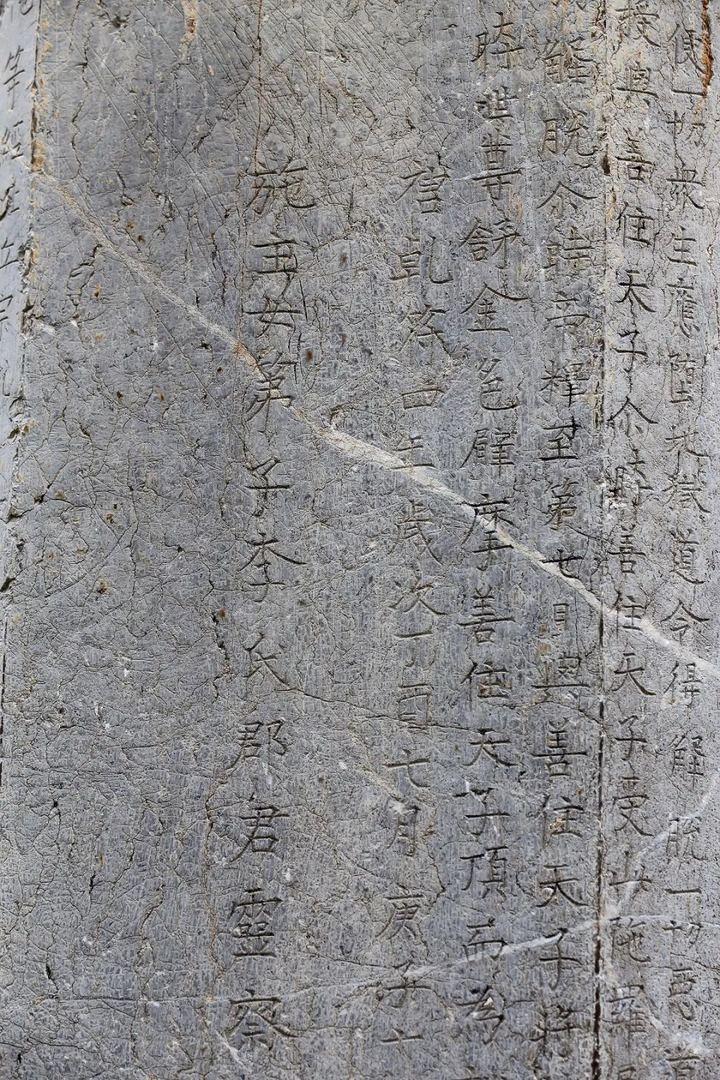 使一切衆生應墮地獄道令得解脫一切惡
授與善住天子尒時善住天子受此陁羅
解脫尒時帝釋至第七日與善住天子將
時世尊舒金色臂摩善住天子頂而為
唐乾符四年歲次丁酉七月庚子
施主女弟子李氏郡君靈